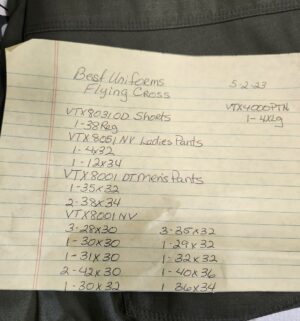 Best Uniforms
Flying Cross
5-2-23
VTX8031OD Shorts
1-38Reg
VTX4000PTN
1-4XRg
VTX8051NV Ladies Pants
1-4x32
1-12x34
VTX8001DT Men's Pants
1-35x32
2-38x34
VTX8001NV
3-28x30
1-30x30
1-31x30
2-42x30
1-30x32
3-35x32
1-29x32
1-32x32
1-40x36
1 36x34